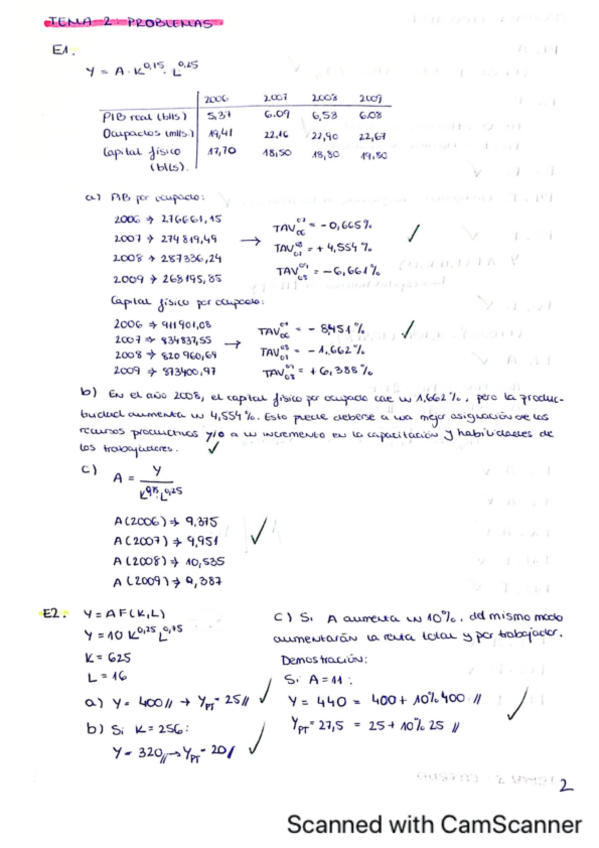 TEMA 2: PROBLEMAS
E1.
Y = A · K^0,75 · L^0,25
2006 2007 2008 2009
PIB real (blls) 5,37 6.09 6,58 6.08
Ocupados (mlls.) 19,41 22,16 22,90 22,67
Capital físico (blls). 17,70 18,50 18,80 19,80
a) PIB por ocupado:
2006 → 276661,15
2007 → 274819,49
2008 → 287336,24
2009 → 268195,85
→
TAV 07 06 = -0,665% ✓
TAV 08 07 = +4,554%
TAV 09 08 = -6,661%
Capital físico por ocupado:
2006 → 911901,08
2007 → 834837,55
2008 → 820960,69
2009 → 873400,97
→
TAV 07 06 = - 8,451% ✓
TAV 08 07 = -1,662%
TAV 09 08 = + 6,388%
b) En el año 2008, el capital físico por ocupado cae un 1,662%, pero la produc-
tividad aumenta un 4,554%. Esto puede deberse a una mejor asignación de los
recursos productivos y/o a un incremento en la capacitación y habilidades de
los trabajadores. ✓
c) A = Y / K^0,75 · L^0,25
A(2006) → 9,375
A(2007) → 9,951 ✓
A(2008) → 10,535
A(2009) → 9,387
E2. Y = AF(K,L)
Y = 10 K^0,25 L^0,75
K = 625
L = 16
a) Y = 400 // → YPT = 25 // ✓
b) Si K = 256:
Y = 320 // → YPT = 20 / ✓
c) Si A aumenta un 10%, del mismo modo
aumentarán la renta total y por trabajador.
Demostración:
Si A = 11:
Y = 440 = 400 + 10% 400 //
YPT = 27,5 = 25 + 10% 25 // ✓
2
Scanned with CamScanner